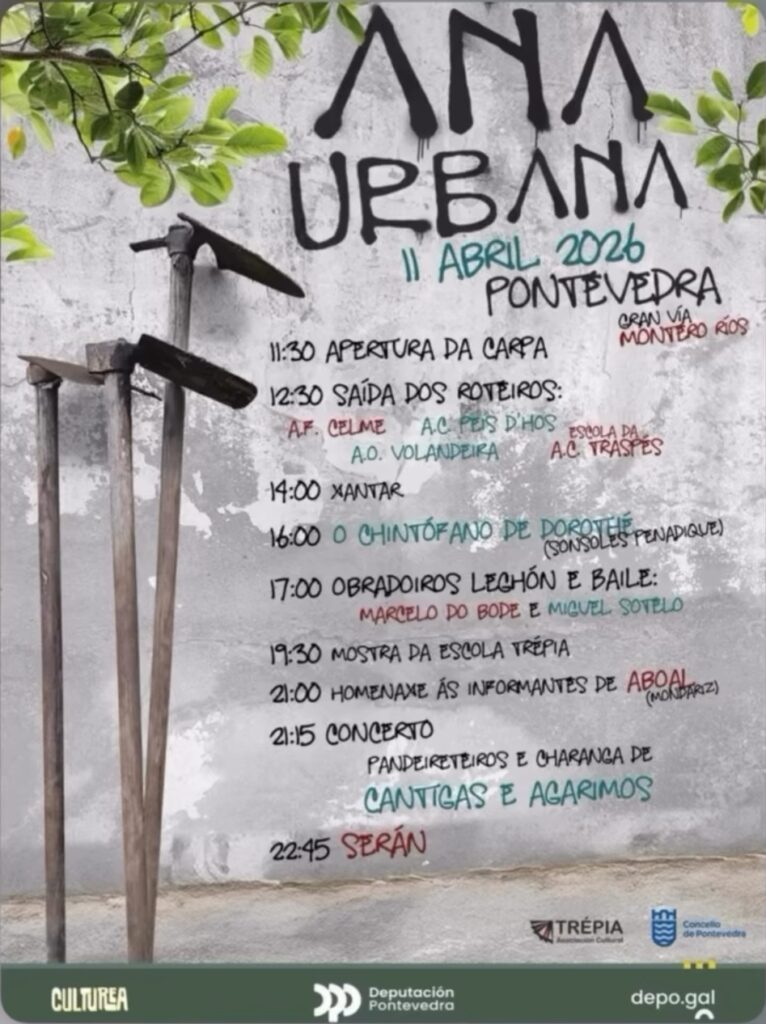 ANA
URBANA
11 ABRIL 2026
PONTEVEDRA
GRAN VÍA
MONTERO RÍOS
11:30 APERTURA DA CARPA
12:30 SAÍDA DOS ROTEIROS:
A.F. CELME A.C. PEIS D'HOS ESCOLA DA
A.O. VOLANDEIRA A.C. TRASPÉS
14:00 XANTAR
16:00 O CHINTÓFANO DE DOROTHÉ
(SONSOLES PENADIQUE)
17:00 OBRADOIROS LEGHÓN E BAILE:
MARCELO DO BODE E MIGUEL SOTELO
19:30 MOSTRA DA ESCOLA TRÉPIA
21:00 HOMENAXE ÁS INFORMANTES DE ABOAL
(MONDARIZ)
21:15 CONCERTO
PANDEIRETEIROS E CHARANGA DE
CANTIGAS E AGARIMOS
22:45 SERÁN
TRÉPIA
Asociación Cultural
Concello
de Pontevedra
CULTUREA
Deputación
Pontevedra
depo.gal